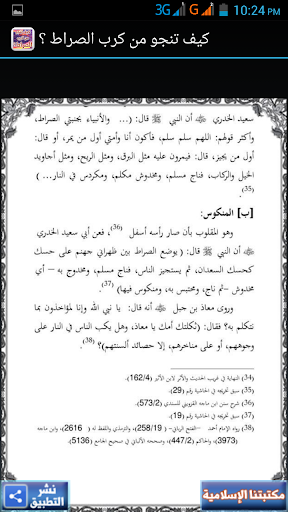 3G G 10:24 PM
كيف تنجو من كرب الصراط ؟
سعيد الخدري ﷺ أن النبي ﷺ قال: (... والأنبياء بجنبتي الصراط،
وأكثر قولهم: اللهم سلم سلم، فأكون أنا وأمتي أول من يمر، أو قال:
أول من يجيز، قال: فيمرون عليه مثل البرق، ومثل الريح، ومثل أجاويد
الخيل والركاب، فناج مسلم، ومخدوش مكلم، ومكردس في النار...)
(35).
[ب] المنكوس:
وهو المقلوب بأن صار رأسه أسفل (36)، فعن أبي سعيد الخدري
أن النبي ﷺ قال: (يوضع الصراط بين ظهراني جهنم على حسك
كحسك السعدان، ثم يستجيز الناس، فناج مسلم، ومخدوج به – أي
مخدوش – ثم ناج، ومحتبس به، ومنكوس فيها) (37).
وروى معاذ بن جبل أنه قال: يا نبي الله وإنا لمؤاخذون بما
نتكلم به؟ فقال: (ثكلتك أمك يا معاذ، وهل يكب الناس في النار على
وجوههم، أو على مناخرهم، إلا حصائد ألسنتهم)؟ (38).
(34) النهاية في غريب الحديث والأثر لابن الأثير (162/4).
(35) سبق تخريجه في الحاشية رقم (29).
(36) شرح سنن ابن ماجه القزويني للسندي (573/2).
(37) سبق تخريجه في الحاشية رقم (19).
(38) رواه الإمام أحمد –الفتح الرباني– (258/19)، والترمذي واللفظ له (2616)، وابن ماجه
(3973)، والحاكم (447/2)، وصححه الألباني في صحيح الجامع (5136).
نشر
التطبيق
مكتبتنا الإسلامية